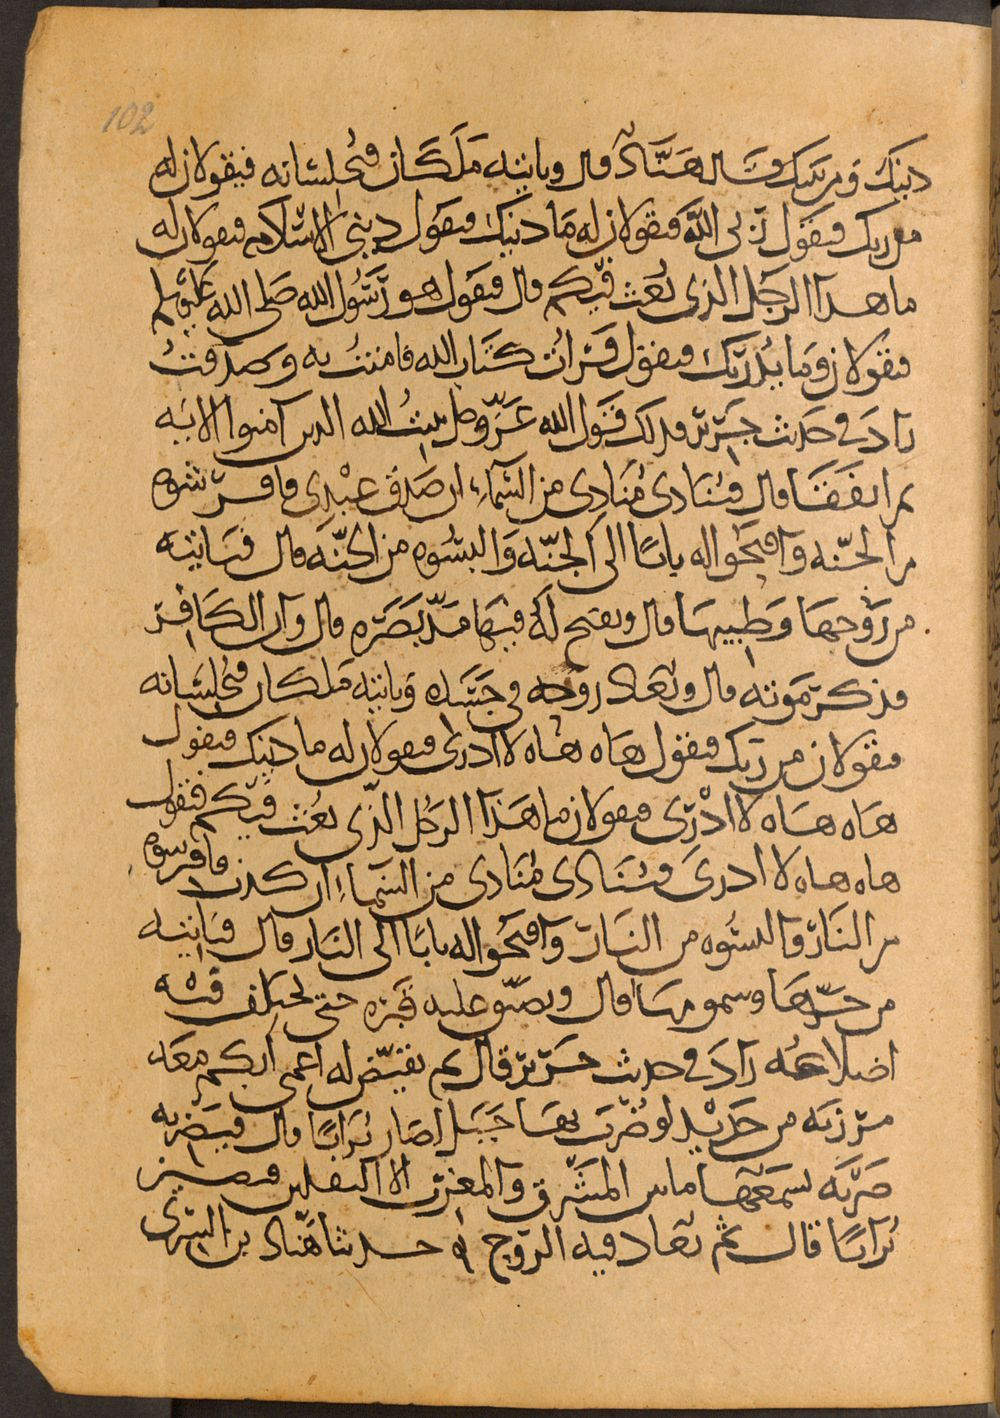 102
دينك ومن نبيك قال هناد قال وياتيه ملكان فيجلسانه فيقولان له
من ربك فيقول ربي الله فيقولان له ما دينك فيقول ديني الاسلام فيقولان له
ما هذا الرجل الذي بعث فيكم قال فيقول هو رسول الله صلى الله عليه وسلم
فيقولان وما يدريك فيقول قرات كتاب الله فامنت به وصدقت
زاد في حديث جرير فذلك قول الله عز وجل يثبت الله الذين امنوا الاية
ثم اتفقا قال فينادي منادي من السماء ان صدق عبدي فافرشوه
من الجنة وافتحوا له بابا الى الجنة والبسوه من الجنة قال فياتيه
من روحها وطيبها قال ويفتح له فيها مد بصره قال وان الكافر
فذكر موته قال وتعاد روحه في جسده وياتيه ملكان فيجلسانه
فيقولان من ربك فيقول هاه هاه لا ادري فيقولان له ما دينك فيقول
هاه هاه لا ادري فيقولان ما هذا الرجل الذي بعث فيكم فيقول
هاه هاه لا ادري فينادي منادي من السماء ان كذب فافرشوه
من النار والبسوه من النار وافتحوا له بابا الى النار قال فياتيه
من حرها وسمومها قال ويضيق عليه قبره حتى تختلف فيه
اضلاعه زاد في حديث جرير قال ثم يقيض له اعمى ابكم معه
مرزبة من حديد لو ضرب بها جبل لصار ترابا قال فيضربه
ضربة يسمعها ما بين المشرق والمغرب الا الثقلين فيصير
ترابا قال ثم تعاد فيه الروح حدثنا هناد بن السري